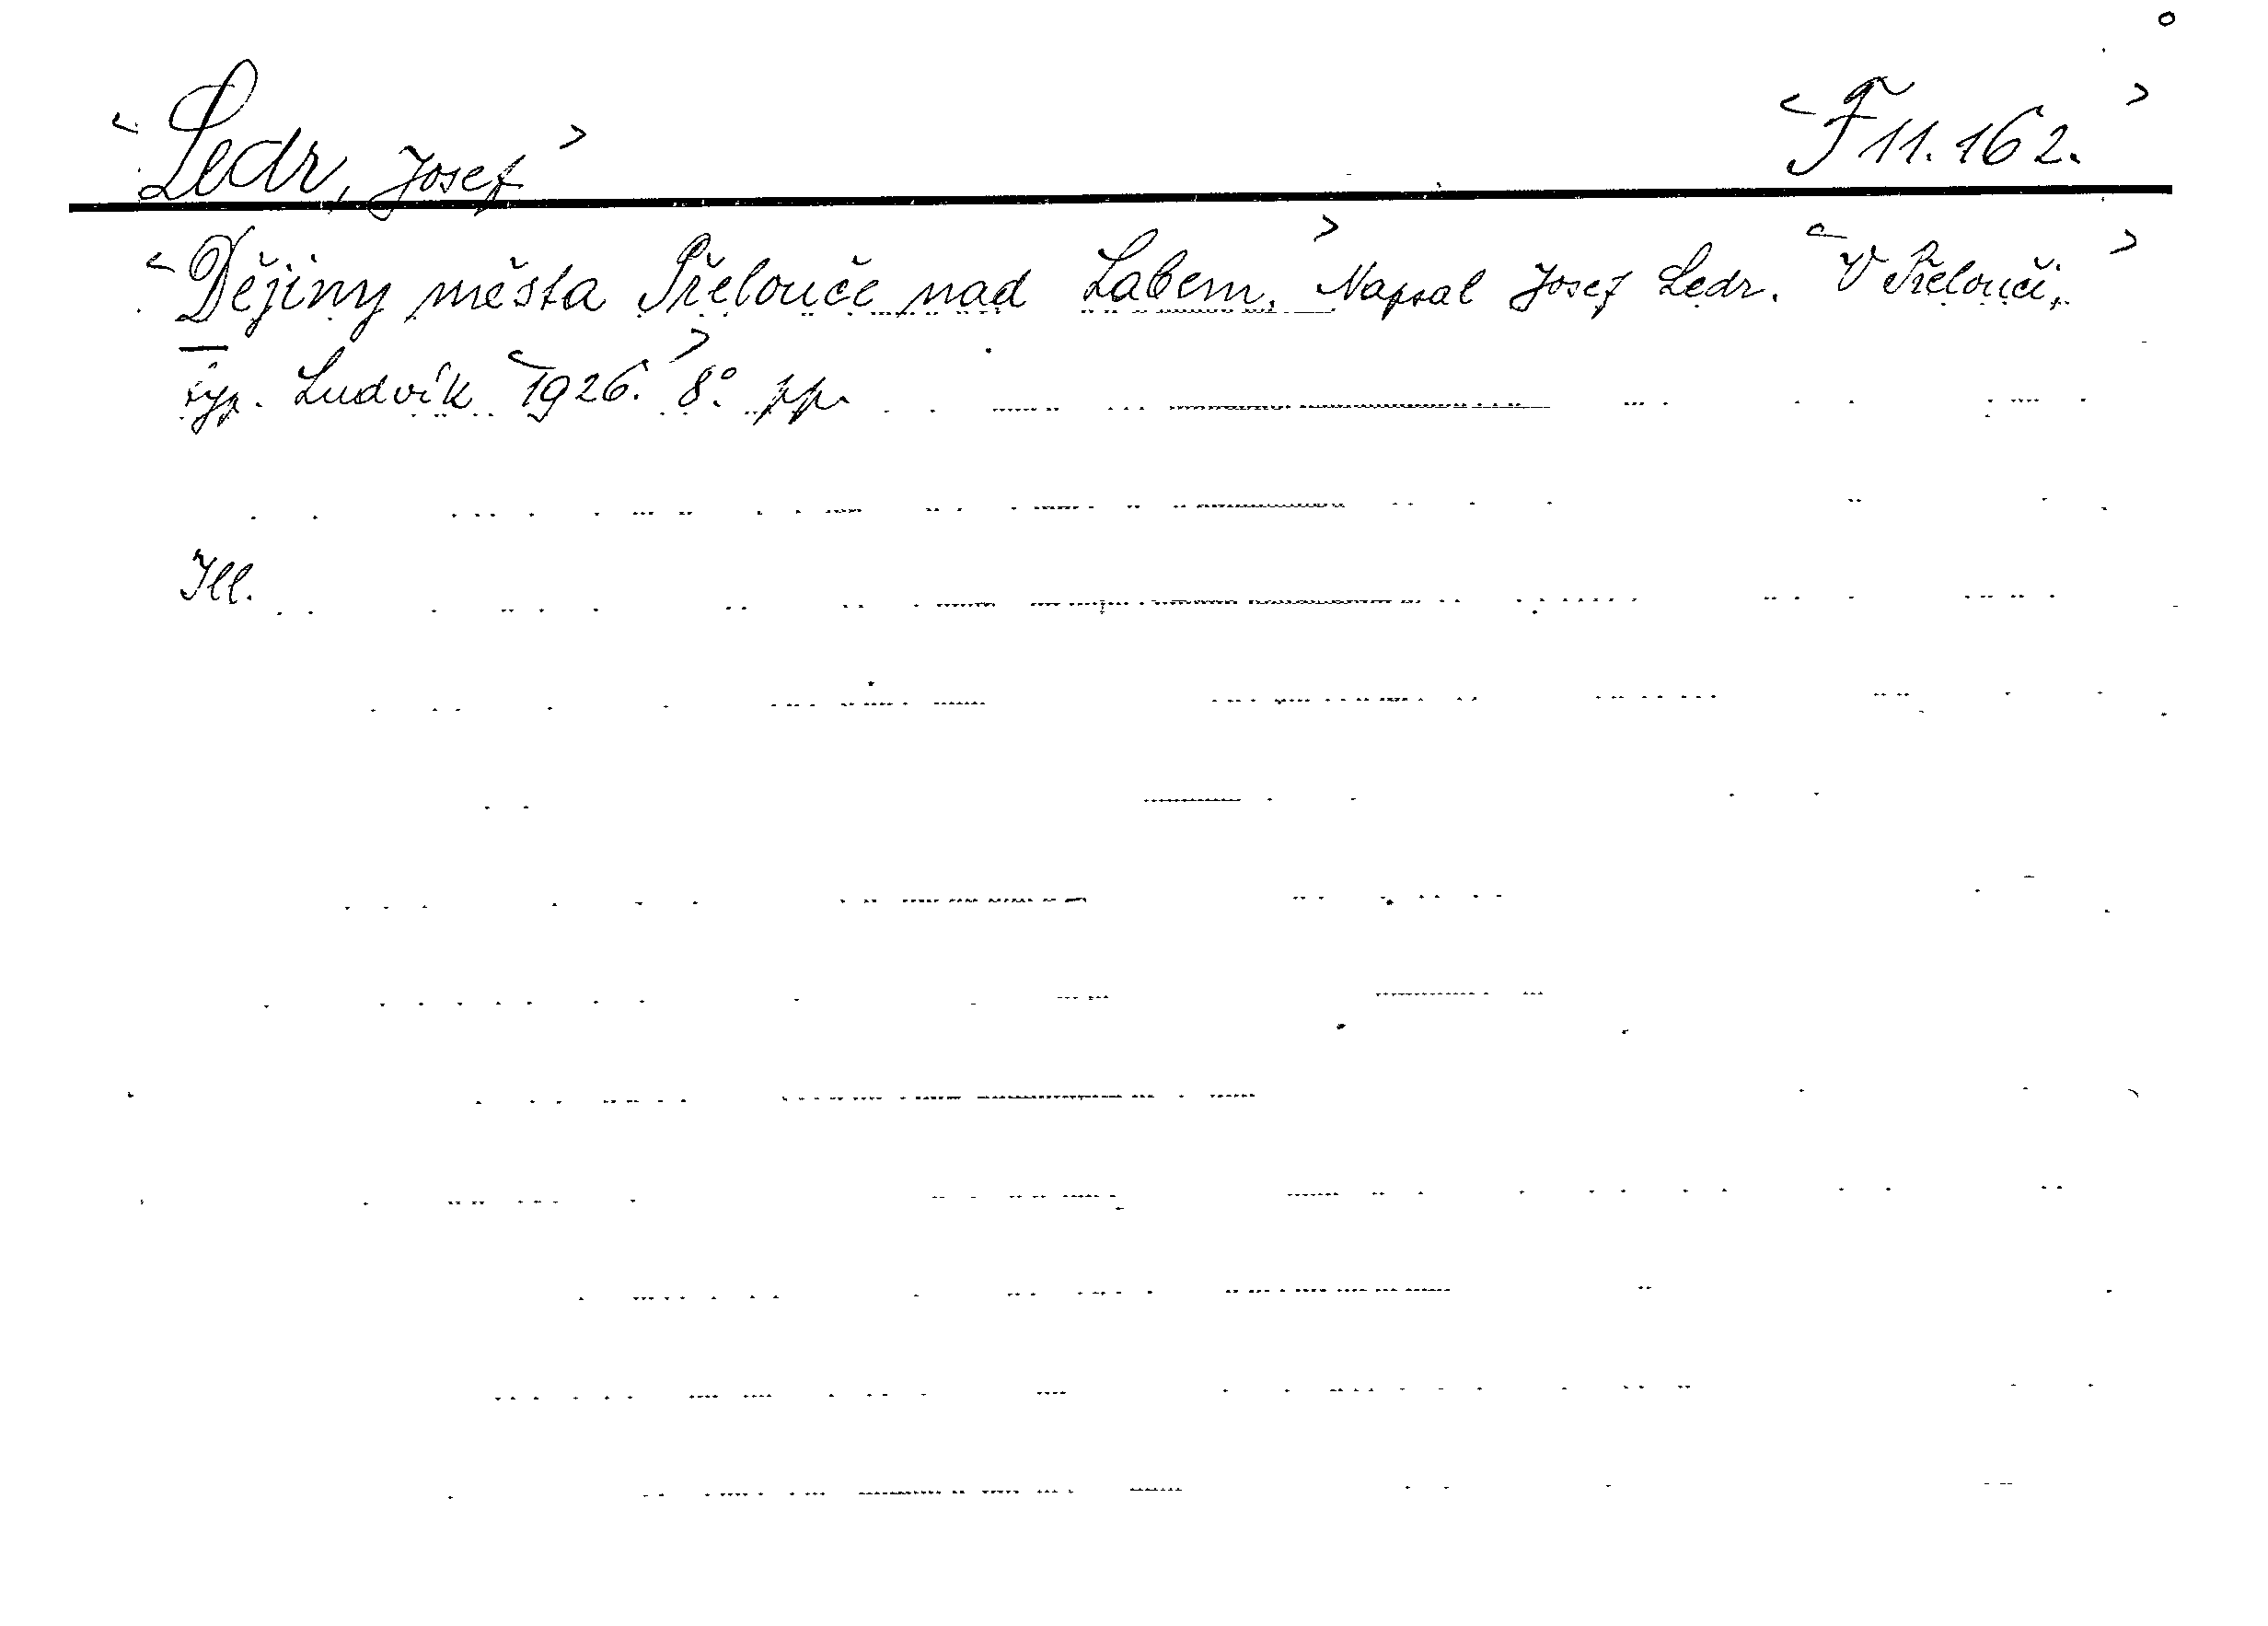 <Ledr, Josef> <F 11.162.>
<Dějiny města Přelouče nad Labem.> Napsal Josef Ledr. <V Přelouči,>
typ. Ludvík <1926.> 8°. pp.
Ill.